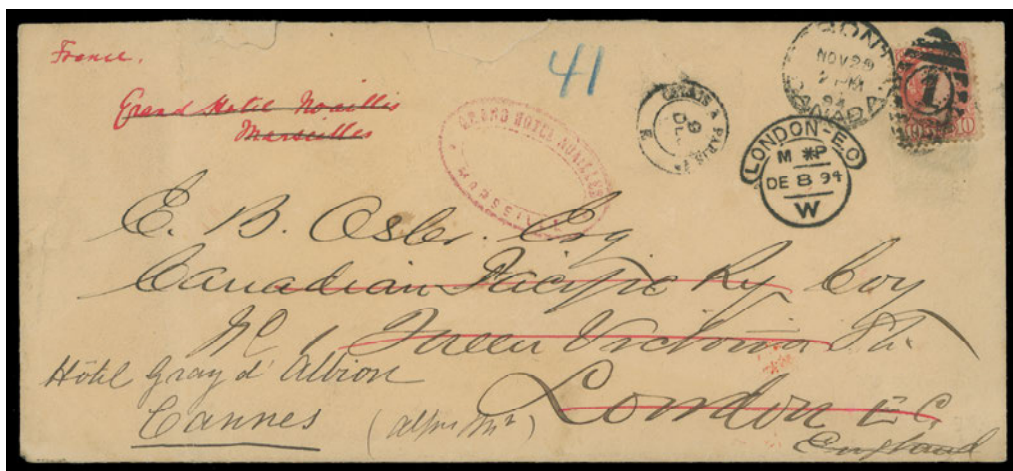 France.
Grand Hotel Noailles
Marseilles
41
GRAND HOTEL NOAILLES
MARSEILLE
CALAIS A PARIS
9
E
ONT
NOV 29
PM
94
CANADA
1
10
LONDON-E.C
M P
DE 8 94
W
E. B. Osler. Esq
Canadian Pacific Ry Coy
No 1 Queen Victoria St.
Hôtel Gray d' Albion
London E C.
Cannes
England